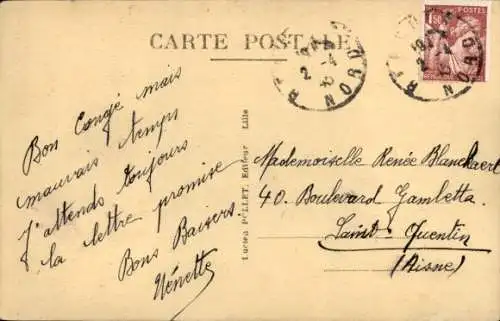 CARTE POSTALE
1F50
POSTES
2-4
NORD
2-4
NORD
Bon Congé mais
mauvais temps
J'attends toujours
la lettre promise
Bons Baisers.
Nénette
Lucien POLLET, Editeur Lille
Mademoiselle Renée Blanckaert
40. Boulevard Gambetta.
Saint-Quentin
(Aisne)